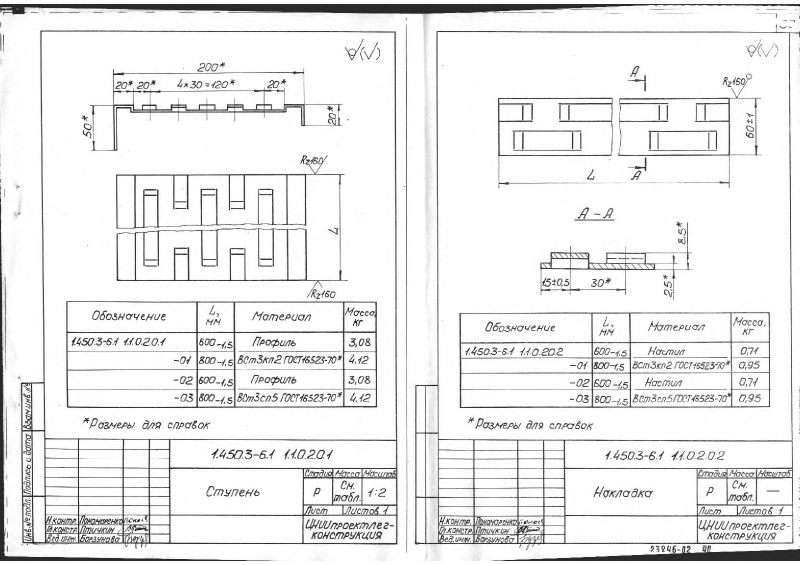 200*
20* 20* 4×30=120* 20*
50*
20*
Rz160
L
Rz160
Обозначение L, мм Материал Масса, кг
1.450.3-6.1 1.1.0.2.0.1 600-1,5 Профиль 3,08
-01 800-1,5 ВСт3кп2 ГОСТ16523-70* 4,12
-02 600-1,5 Профиль 3,08
-03 800-1,5 ВСт3сп5 ГОСТ16523-70* 4,12
*Размеры для справок
1.450.3-6.1 1.1.0.2.0.1
Ступень
Стадия Масса Масштаб
Р См. табл. 1:2
Лист Листов 1
ЦНИИпроектлег-
конструкция
Н.контр. Пономаренко
Гл.констр. Птичкин
Вед.инж. Барзунова
Инв.№ подл. Подпись и дата Взам.инв.№
А
Rz160
60±1
L
А
А – А
8.5*
2.5*
15±0,5 30*
Обозначение L, мм Материал Масса, кг
1.450.3-6.1 1.1.0.2.0.2 600-1,5 Настил 0,71
-01 800-1,5 ВСт3кп2 ГОСТ16523-70* 0,95
-02 600-1,5 Настил 0,71
-03 800-1,5 ВСт3сп5 ГОСТ16523-70* 0,95
*Размеры для справок
1.450.3-6.1 1.1.0.2.0.2
Накладка
Стадия Масса Масштаб
Р См. табл. —
Лист Листов 1
ЦНИИпроектлег-
конструкция
Н.контр. Пономаренко
Гл.констр. Птичкин
Вед.инж. Барзунова
23846-02 40